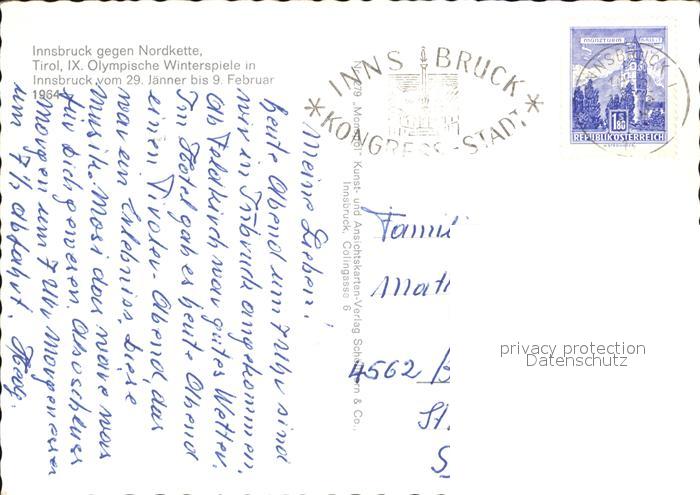 Innsbruck gegen Nordkette,
Tirol, IX. Olympische Winterspiele in
Innsbruck vom 29. Jänner bis 9. Februar
1964
INNSBRUCK
KONGRESS-STADT
MÜNZTURM HALL I. T.
INNSBRUCK 1
1.80
REPUBLIK ÖSTERREICH
Meine Lieben!
heute Abend um 7 Uhr sind
wir in Insbruck angekommen.
Ab Feldkirch war gutes Wetter.
Im Hotel gab es heute Abend
einen Tiroler-Abend, das
war ein Erlebniss. Diese
Musik. Mosi das wäre was
für dich gewesen. Also
Morgen um 7 Uhr Morgenessen
um 7½ Abfahrt.
"Monopol" Kunst- und Ansichtskarten-Verlag & Co.,
Innsbruck, Colingasse 6
Famil
Math
4562
St.
S
privacy protection
Datenschutz